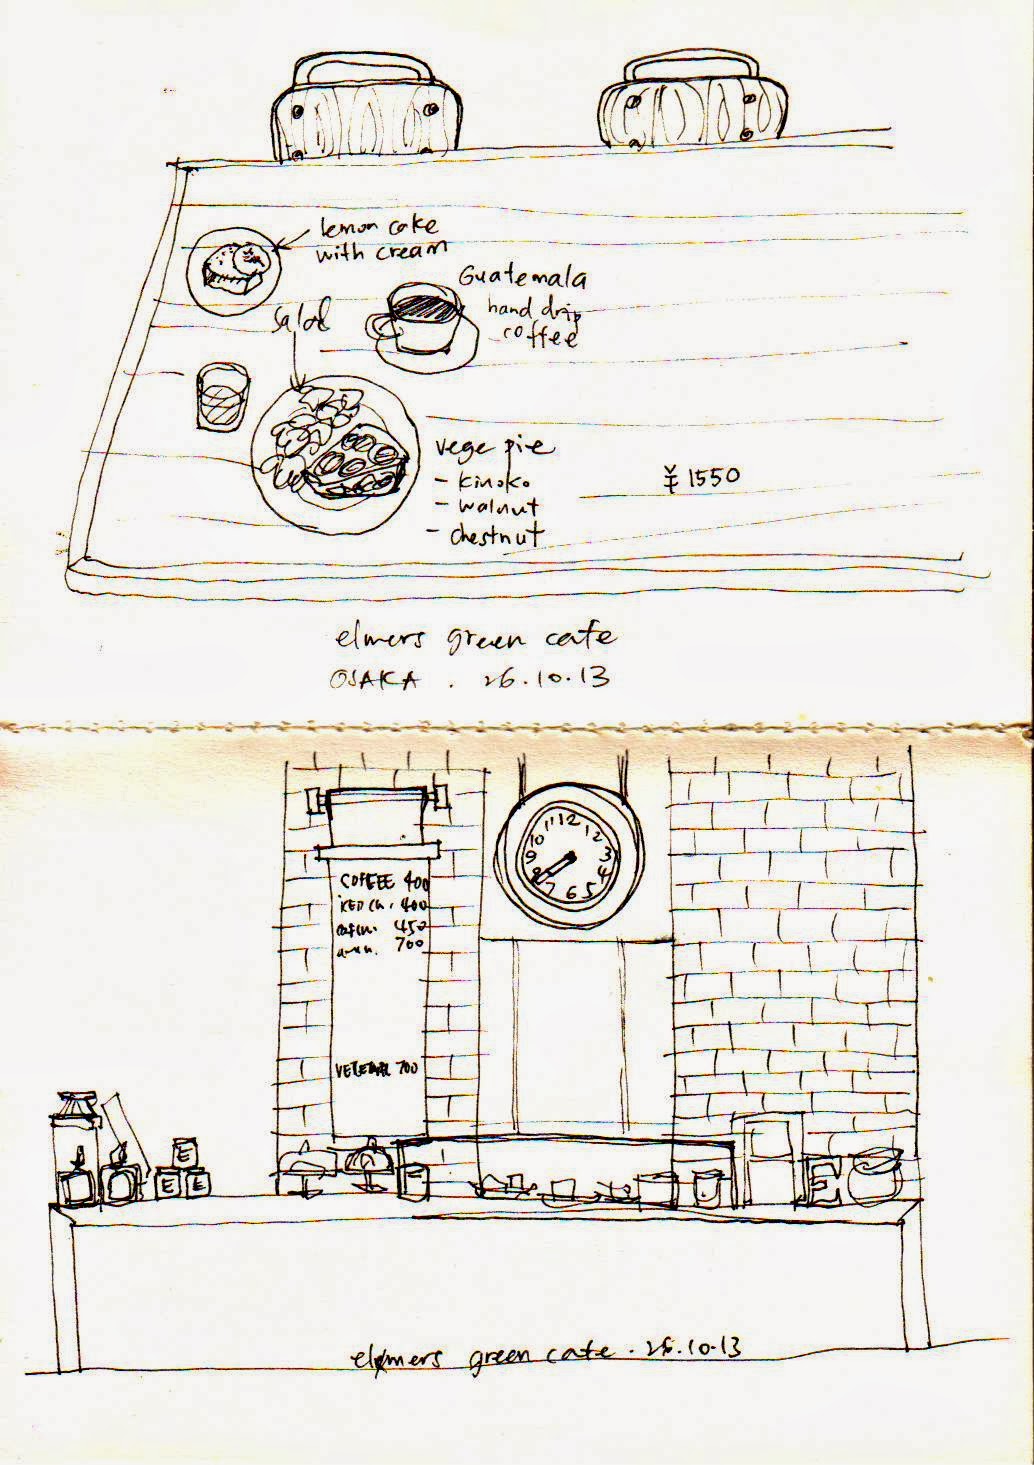 lemon cake
with cream
Guatemala
hand drip
coffee
Salad
vege pie
- kinoko
- walnut
- chestnut
¥1550
elmers green cafe
OSAKA . 26.10.13
11 12 1 2 3 4 5 6 7 8 9 10
COFFEE 400
ICED 400
450
700
700
E
E
E
E
elmers green cafe . 26.10.13